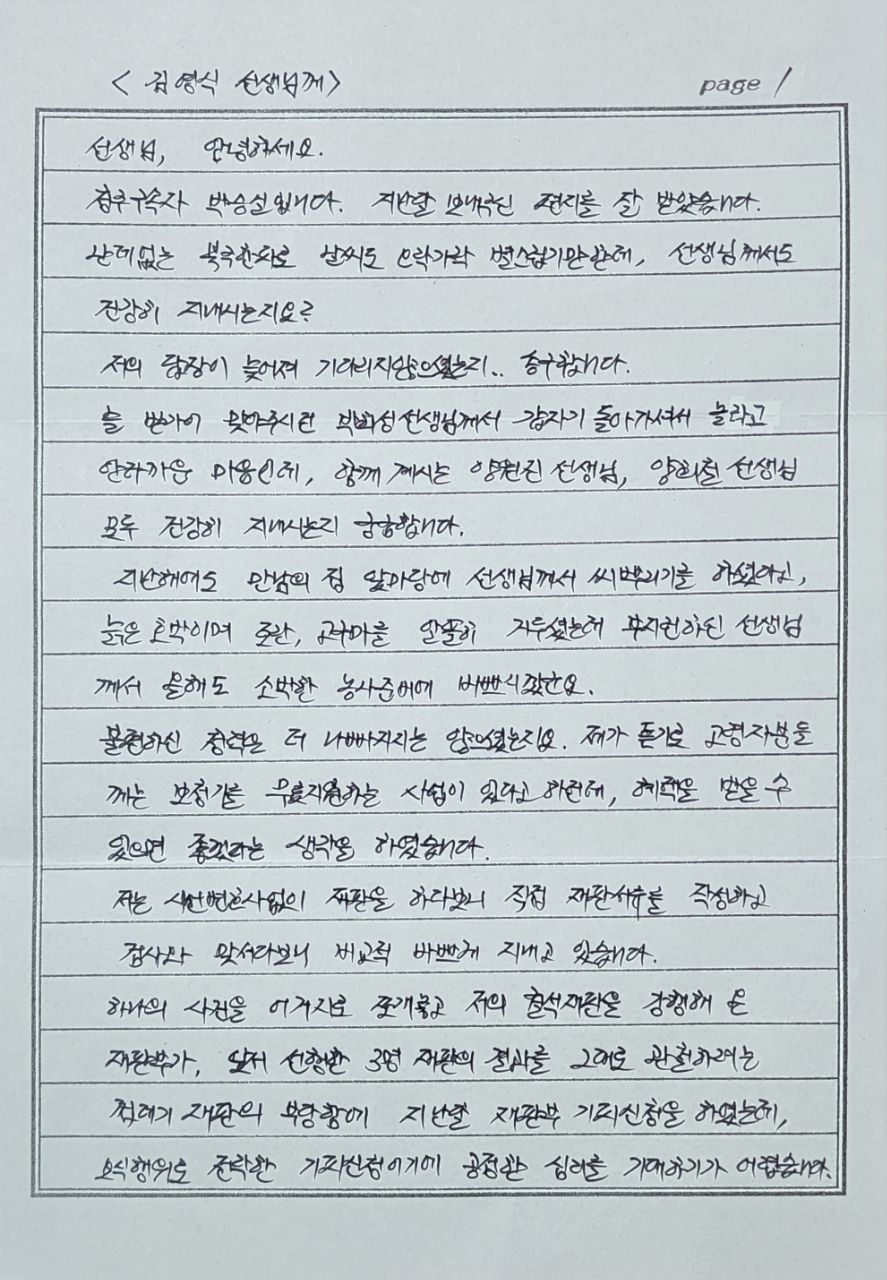 < 김영식 선생님께 >
page 1
선생님, 안녕하세요.
청주구속자 박승실입니다. 지난달 보내주신 편지를 잘 받았습니다.
난데없는 북극한파로 날씨도 오락가락 변스럽기만한데, 선생님께서도
건강히 지내시는지요?
저의 답장이 늦어져 기다리지않으셨는지.. 송구합니다.
늘 반가이 맞아주시던 박희성선생님께서 갑자기 돌아가셔서 놀라고
안타까운 마음인데, 함께 계시는 양원진 선생님, 양희철 선생님
모두 건강히 지내시는지 궁금합니다.
지난해에도 만남의 집 앞마당에 선생님께서 씨뿌리기를 하셨다고,
늙은 호박이며 토란, 고구마를 알뜰히 거두셨는데 부지런하신 선생님
께서 올해도 소박한 농사준비에 바쁘시겠군요.
불편하신 청력은 더 나빠지지는 않으셨는지요. 제가 듣기로 고령자분들
께는 보청기를 무료지원하는 사업이 있다고 하던데, 혜택을 받을 수
있으면 좋겠다는 생각을 하였습니다.
저는 사선변호사없이 재판을 하다보니 직접 재판서류를 작성하고
검사와 맞서다보니 비교적 바쁘게 지내고 있습니다.
하나의 사건을 억지로 쪼개놓고 저의 출석재판을 강행해 온
재판부가, 앞서 선행한 3명 재판의 결과를 그대로 관철하려는
껍데기 재판의 부당함에 지난달 재판부 기피신청을 하였는데,
요식행위로 전락한 기피신청이기에 공정한 심리를 기대하기가 어렵습니다.